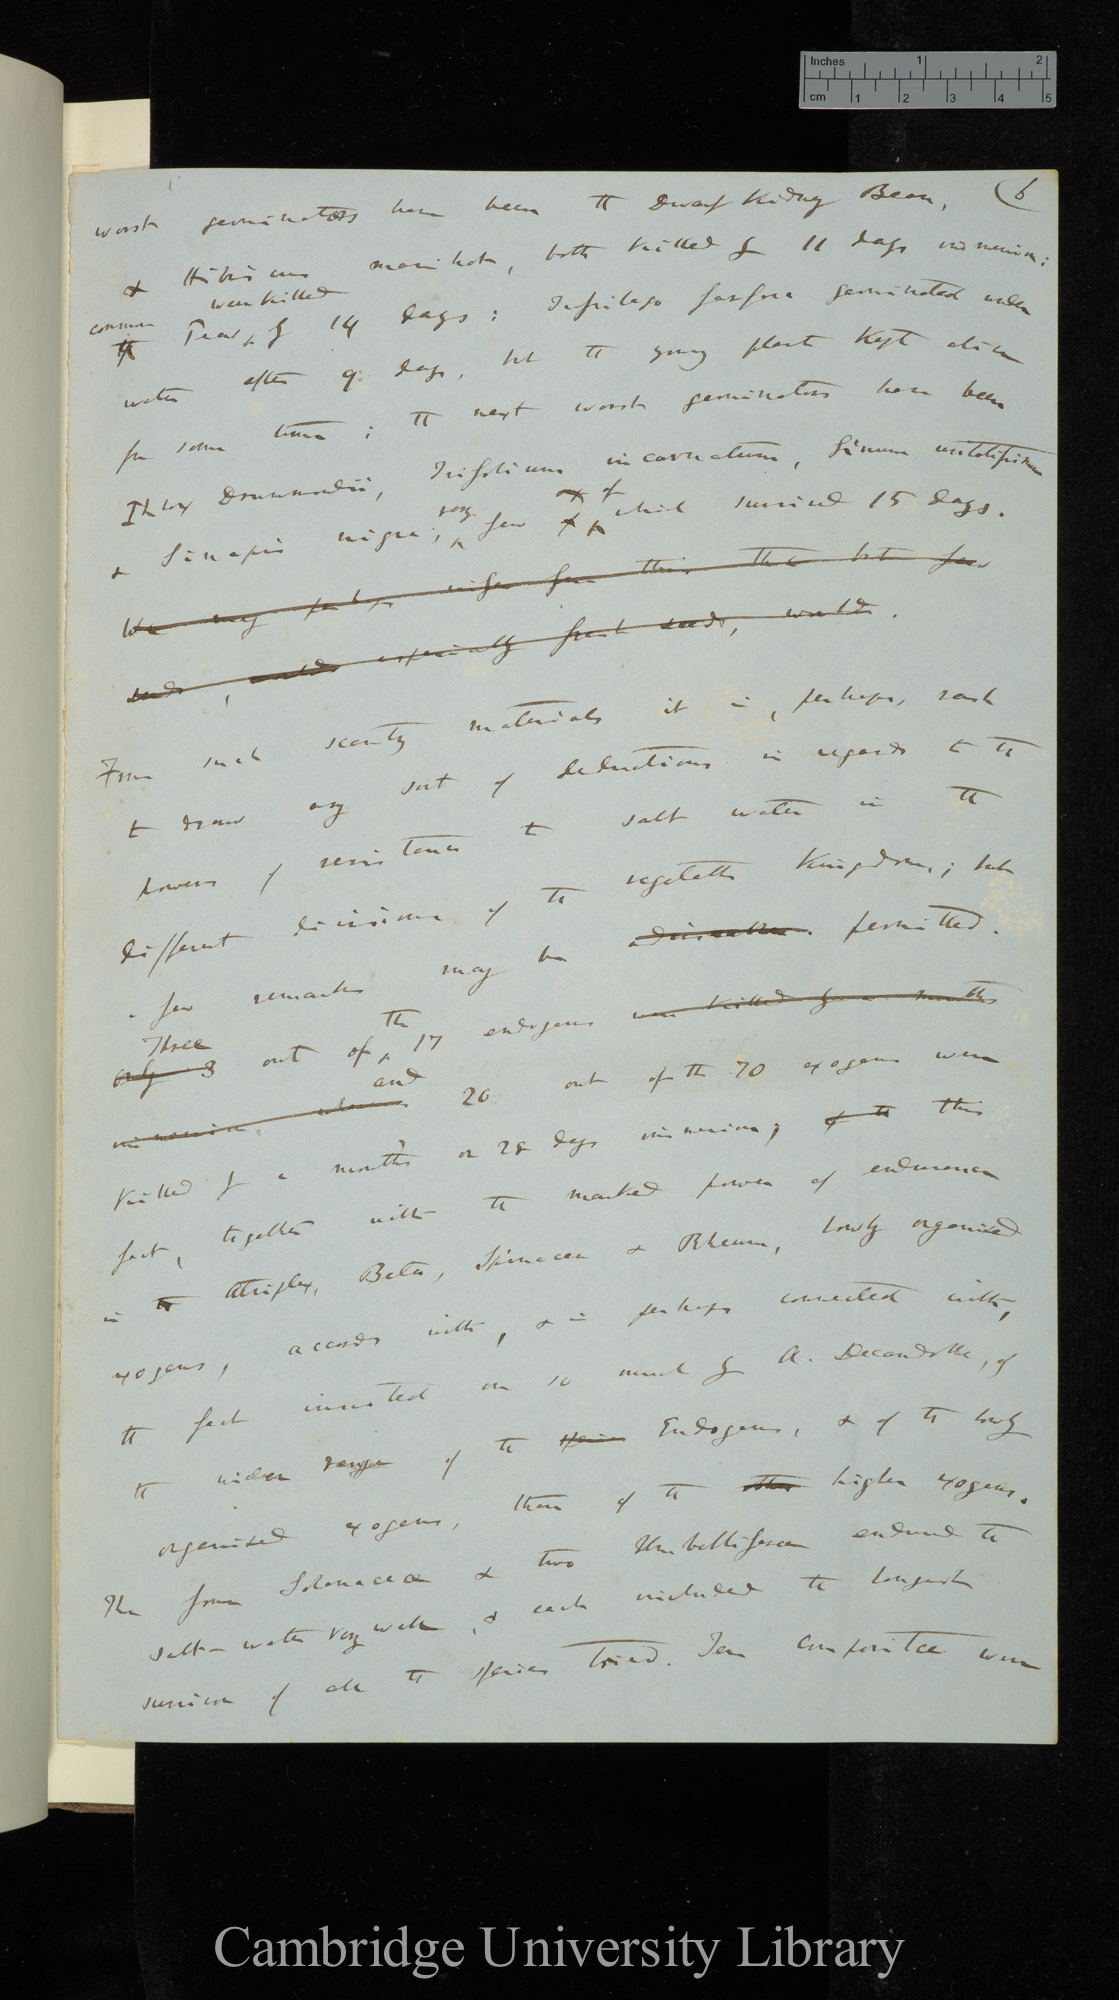 Inches 1 2
cm 1 2 3 4 5
(6
worst germinators have been the Dwarf Kidney Bean,
& Hibiscus manihot, both killed by 11 days immersion;
were killed
common the Peas, by 14 days: Tussilago farfara germinated under
water after 9 days, but the young plant kept alive
for some time; the next worst germinators have been
Phlox Drummondii, Trifolium incarnatum, Linum usitatissimum
& Sinapis nigra; very few of which survived 15 days.
We may perhaps infer from this that but few
seeds, would especially fresh seeds, would.
From such scanty materials it is, perhaps, rash
to draw any sort of deductions in regards to the
powers of resistance to salt water in the
different divisions of the vegetable Kingdom; but
a few remarks may be permitted.
Three the
only 3 out of 17 endogens were killed by a month's
and
immersion, 20 out of the 70 exogens were
killed by a month's or 28 days immersion; of the this
fact, together with the marked power of endurance
in the Atriplex, Beta, Spinacea & Rheum, lowly organised
exogens, accords with, & is perhaps connected with,
the fact insisted on so much by A. Decandolle, of
the wider range of the species Endogens, & of the lowly
organised exogens, than of the other higher exogens.
The four Solanaceæ & two Umbelliferæ endured the
salt-water very well, & each included the longest
survivor of all the species tried. Ten compositæ were
Cambridge University Library